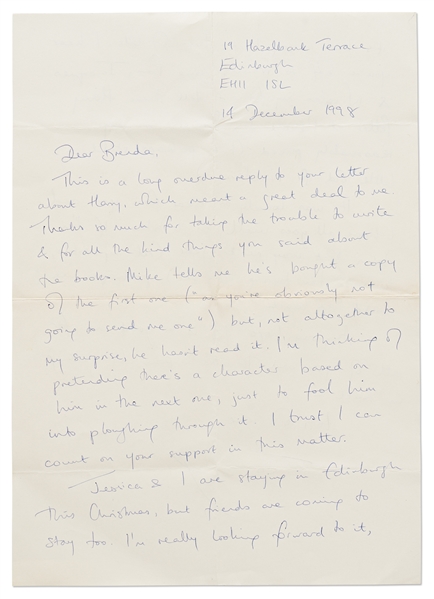 19 Hazelbank Terrace
Edinburgh
EH11 1SL
14 December 1998
Dear Brenda,
This is a long overdue reply to your letter
about Harry, which meant a great deal to me.
Thanks so much for taking the trouble to write
& for all the kind things you said about
the books. Mike tells me he's bought a copy
of the first one ("as you're obviously not
going to send me one") but, not altogether to
my surprise, he hasn't read it. I'm thinking of
pretending there's a character based on
him in the next one, just to fool him
into ploughing through it. I trust I can
count on your support in this matter.
Jessica & I are staying in Edinburgh
this Christmas, but friends are coming to
stay too. I'm really looking forward to it,